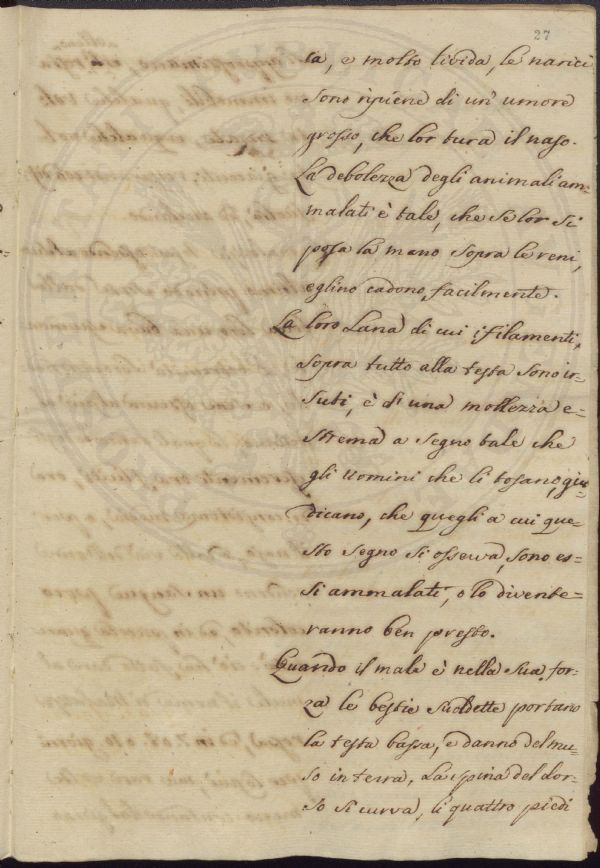 27
ca, e molto livida, le narici
sono ripiene di un' umore
grosso, che lor tura il naso.
La debolezza degli animali am=
malati è tale, che se lor si
posa la mano sopra le reni,
eglino cadono facilmente.
La loro Lana di cui i filamenti,
sopra tutto alla testa sono ir=
suti, è di una mollezza e=
strema a segno tale che
gli uomini che li tosano, giu=
dicano, che quegli a cui que=
sto segno si osserva, sono es=
si ammalati, o lo divente=
ranno ben presto.
Quando il male è nella sua for=
za le bestie suddette portano
la testa bassa, e danno del mu=
so in terra, La spina del dor=
so si curva, li quattro piedi